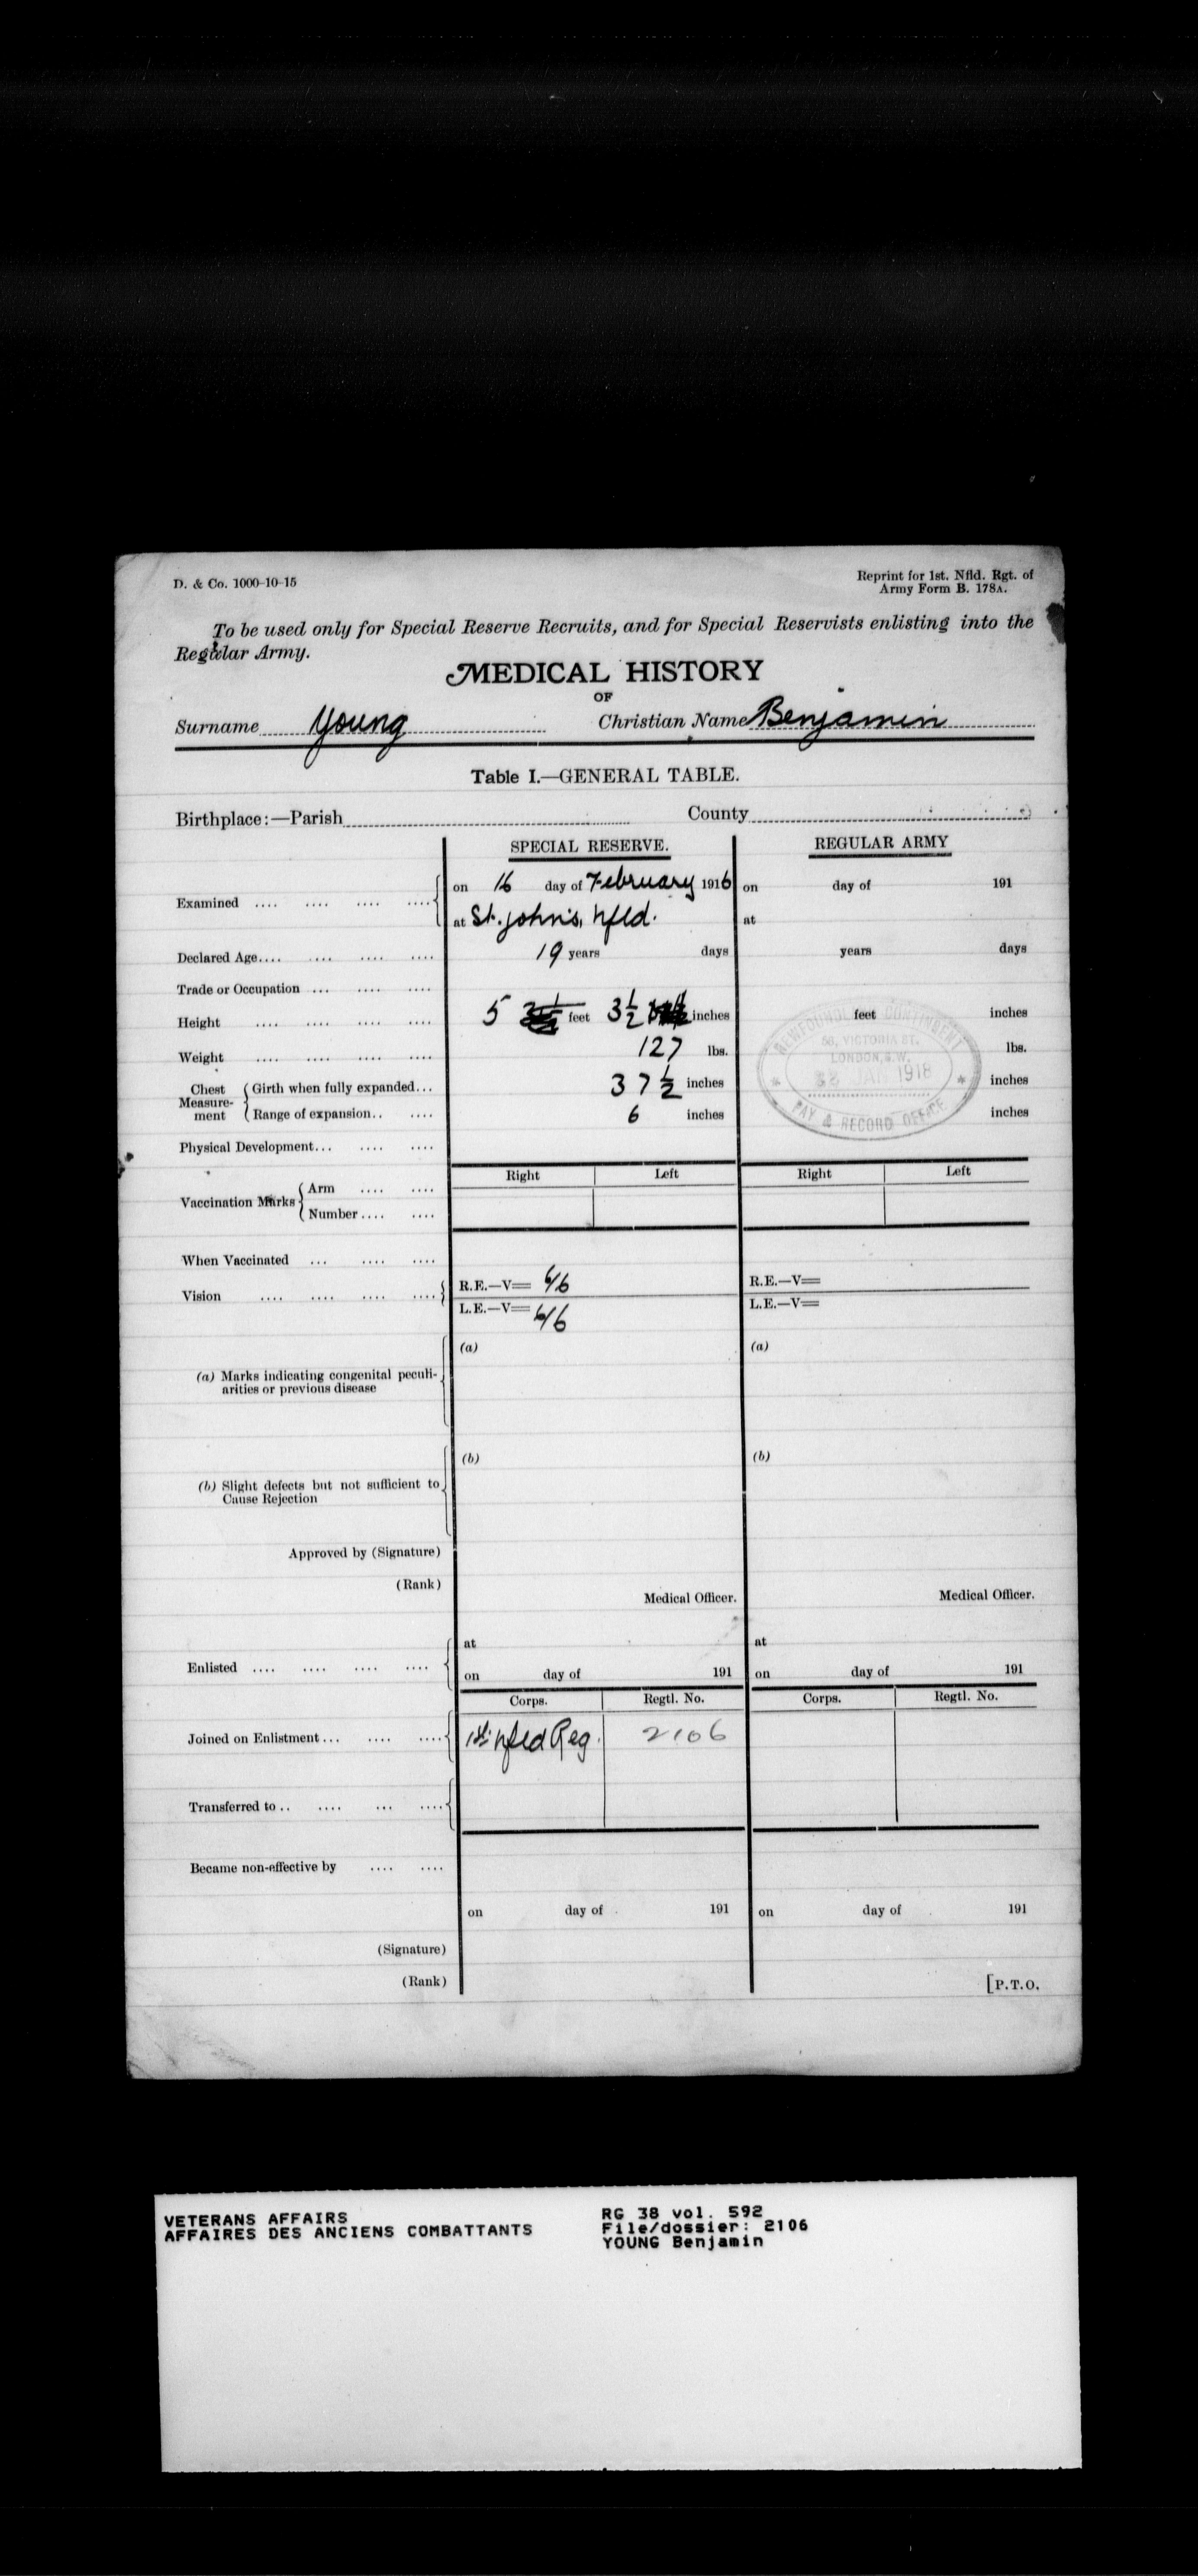 D. & Co. 1000-10-15
Reprint for 1st. Nfld. Rgt. of
Army Form B. 178A.
To be used only for Special Reserve Recruits, and for Special Reservists enlisting into the
Regular Army.
MEDICAL HISTORY
OF
Surname Young Christian Name Benjamin
Table I.—GENERAL TABLE.
Birthplace:—Parish County
SPECIAL RESERVE. REGULAR ARMY
Examined .... .... .... .... on 16 day of February 1916 on day of 191
at St. John's, Nfld. at
Declared Age.... .... .... .... 19 years days years days
Trade or Occupation ... .... ....
Height .... .... .... .... 5 feet 3½ inches feet inches
Weight .... .... .... .... 127 lbs. lbs.
Chest Measurement Girth when fully expanded... 37½ inches inches
Range of expansion.. .... 6 inches inches
NEWFOUNDLAND CONTINGENT
58, VICTORIA ST.
LONDON, S.W.
JAN 1918
PAY & RECORD OFFICE
Physical Development... .... ....
Right Left Right Left
Vaccination Marks Arm .... ....
Number .... ....
When Vaccinated ... .... ....
Vision .... .... .... .... R.E.—V= 6/6 R.E.—V=
L.E.—V= 6/6 L.E.—V=
(a) (a)
(a) Marks indicating congenital peculi-
arities or previous disease
(b) (b)
(b) Slight defects but not sufficient to
Cause Rejection
Approved by (Signature)
(Rank)
Medical Officer. Medical Officer.
at at
Enlisted .... .... .... .... on day of 191 on day of 191
Corps. Regtl. No. Corps. Regtl. No.
Joined on Enlistment... .... .... 1st Nfld Reg. 2106
Transferred to .. .... ... ....
Became non-effective by .... ....
on day of 191 on day of 191
(Signature)
(Rank)
[P.T.O.
VETERANS AFFAIRS
AFFAIRES DES ANCIENS COMBATTANTS
RG 38 vol. 592
File/dossier: 2106
YOUNG Benjamin